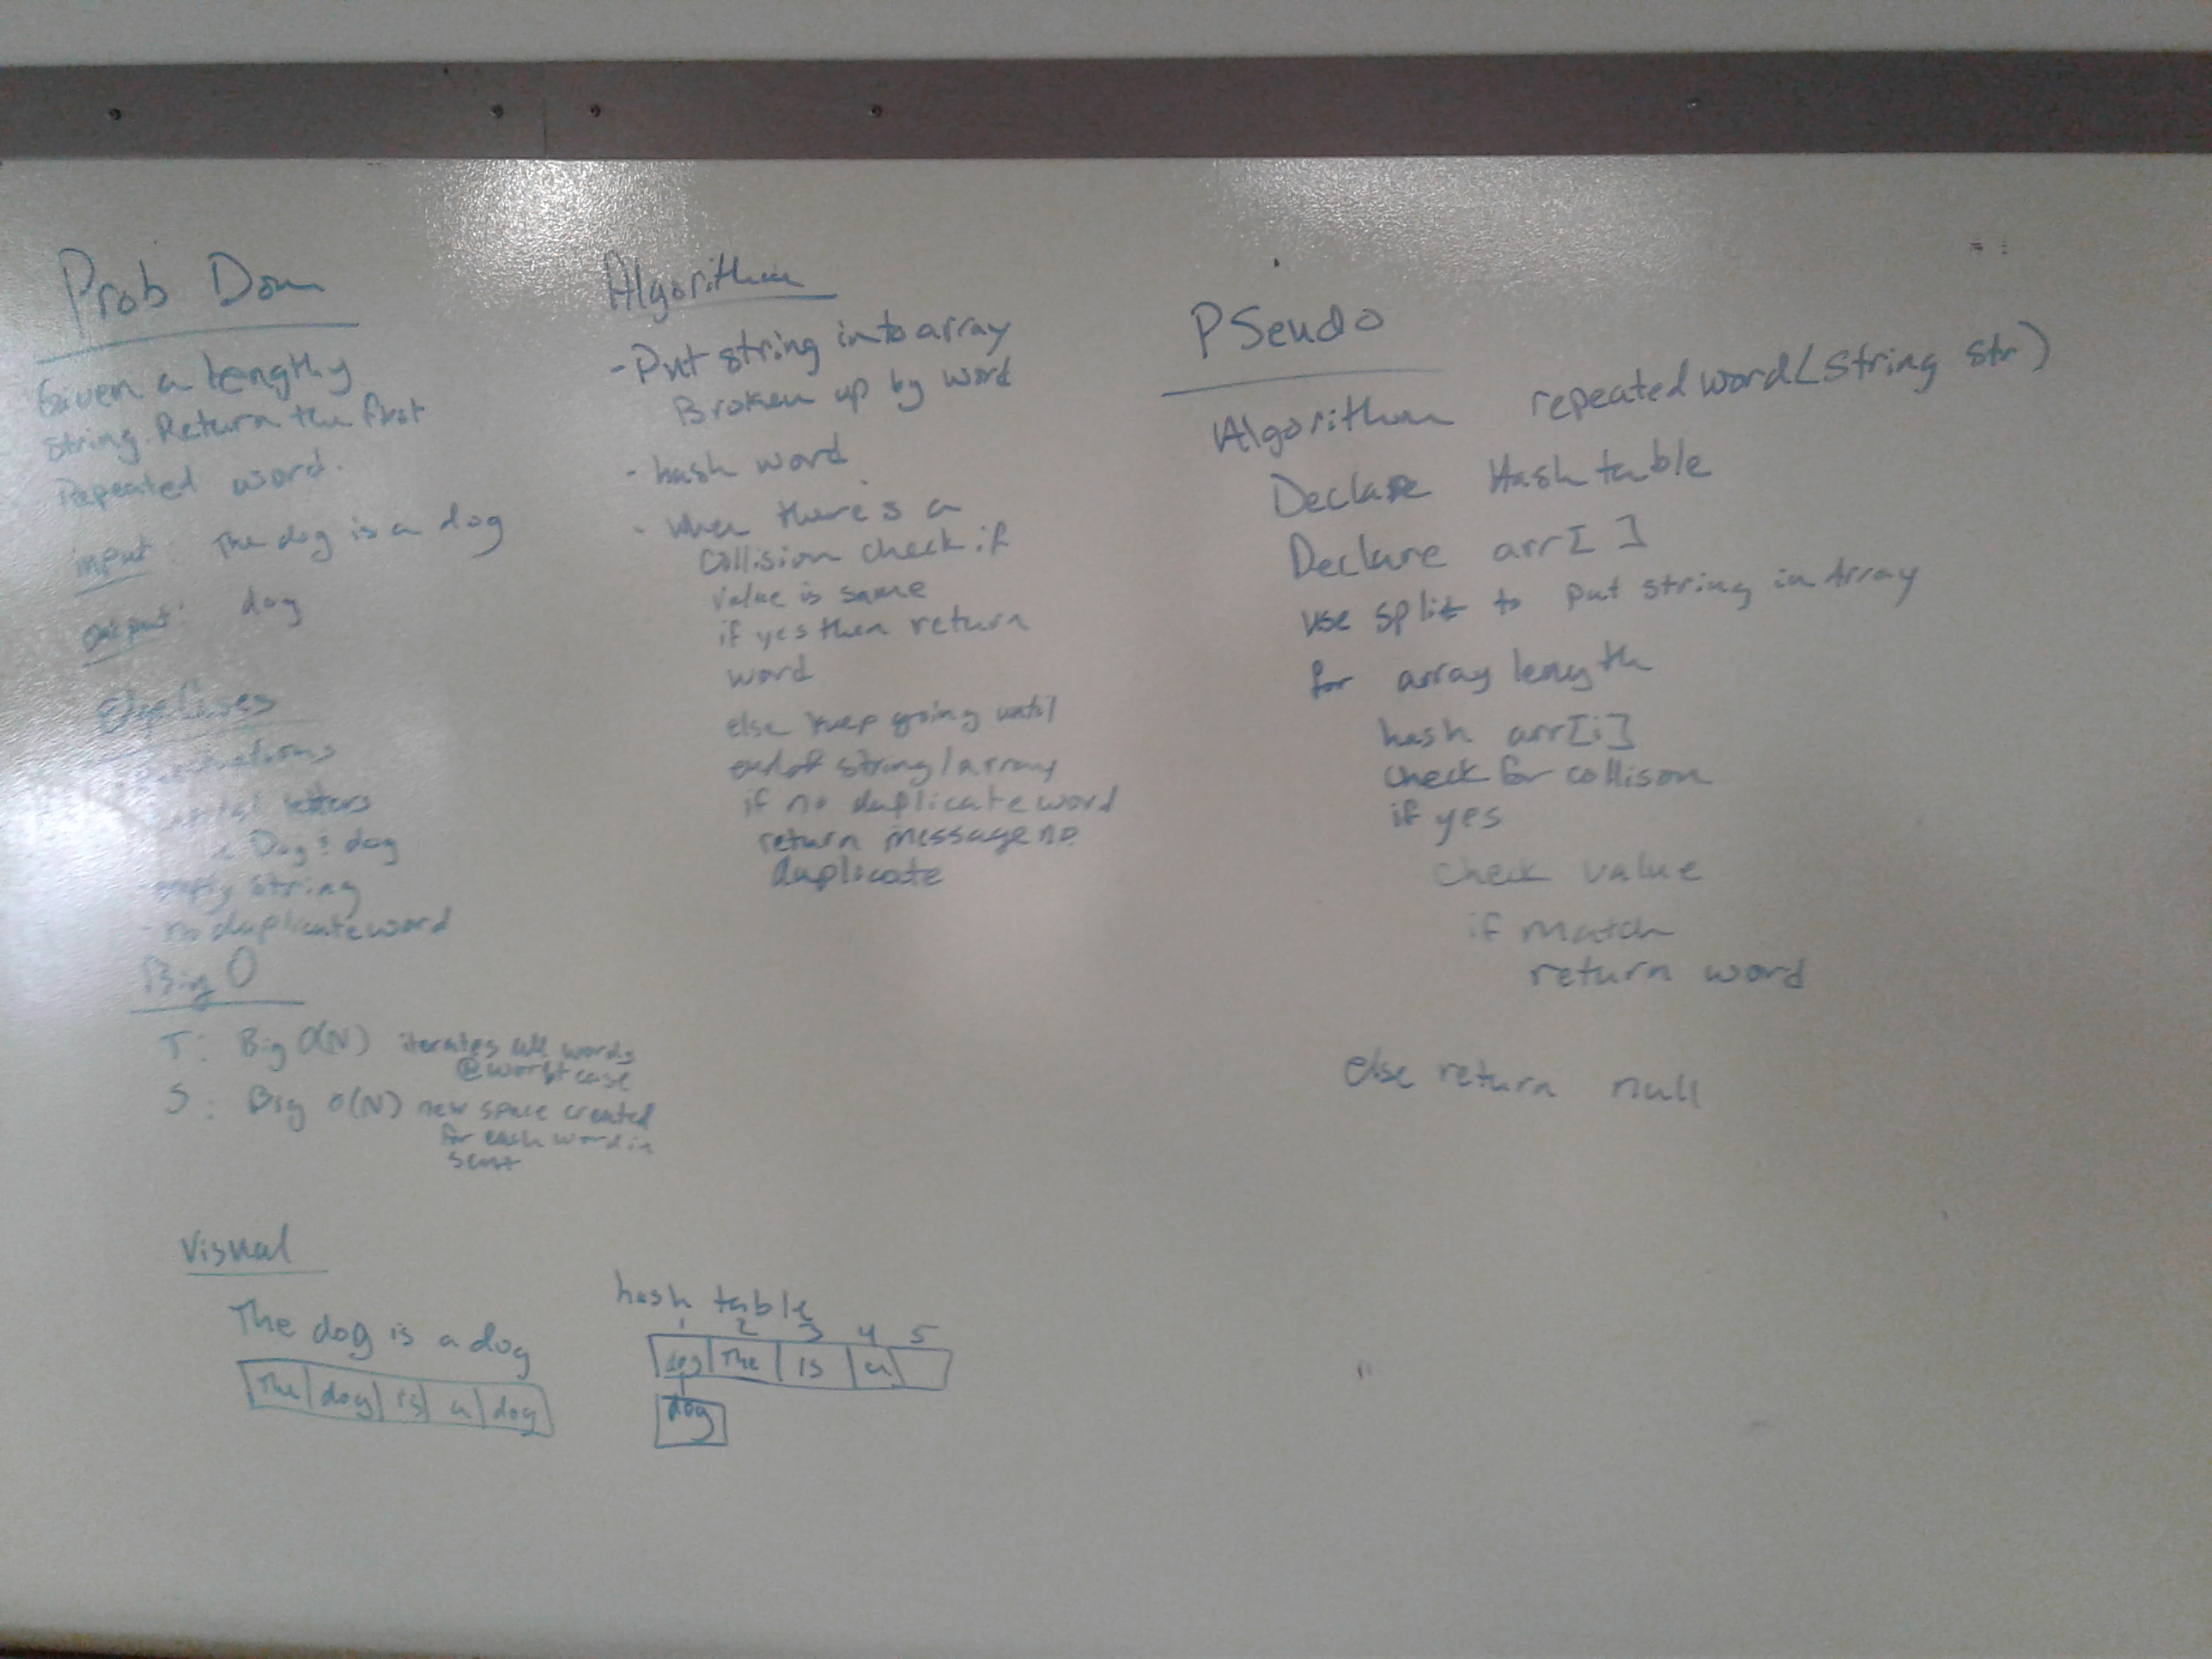 Prob Dom
Given a lengthy
string. Return the first
repeated word.
input: The dog is a dog
output: dog
Edge Cases
letters
Dog : dog
empty string
- no duplicate word
Big O
T: Big O(N) iterates all words
@ worst case
S: Big O(N) new space created
for each word in
sent
Visual
The dog is a dog
The dog is a dog
hash table
1 2 3 4 5
dog The is a
dog
Algorithm
- Put string into array
Broken up by word
- hash word
- when there's a
collision check if
value is same
if yes then return
word
else keep going until
end of string/array
if no duplicate word
return message no
duplicate
PSeudo
Algorithm repeatedword(String str)
Declare Hash table
Declare arr[ ]
use split to put string in Array
for array length
hash arr[i]
check for collison
if yes
check value
if match
return word
else return null